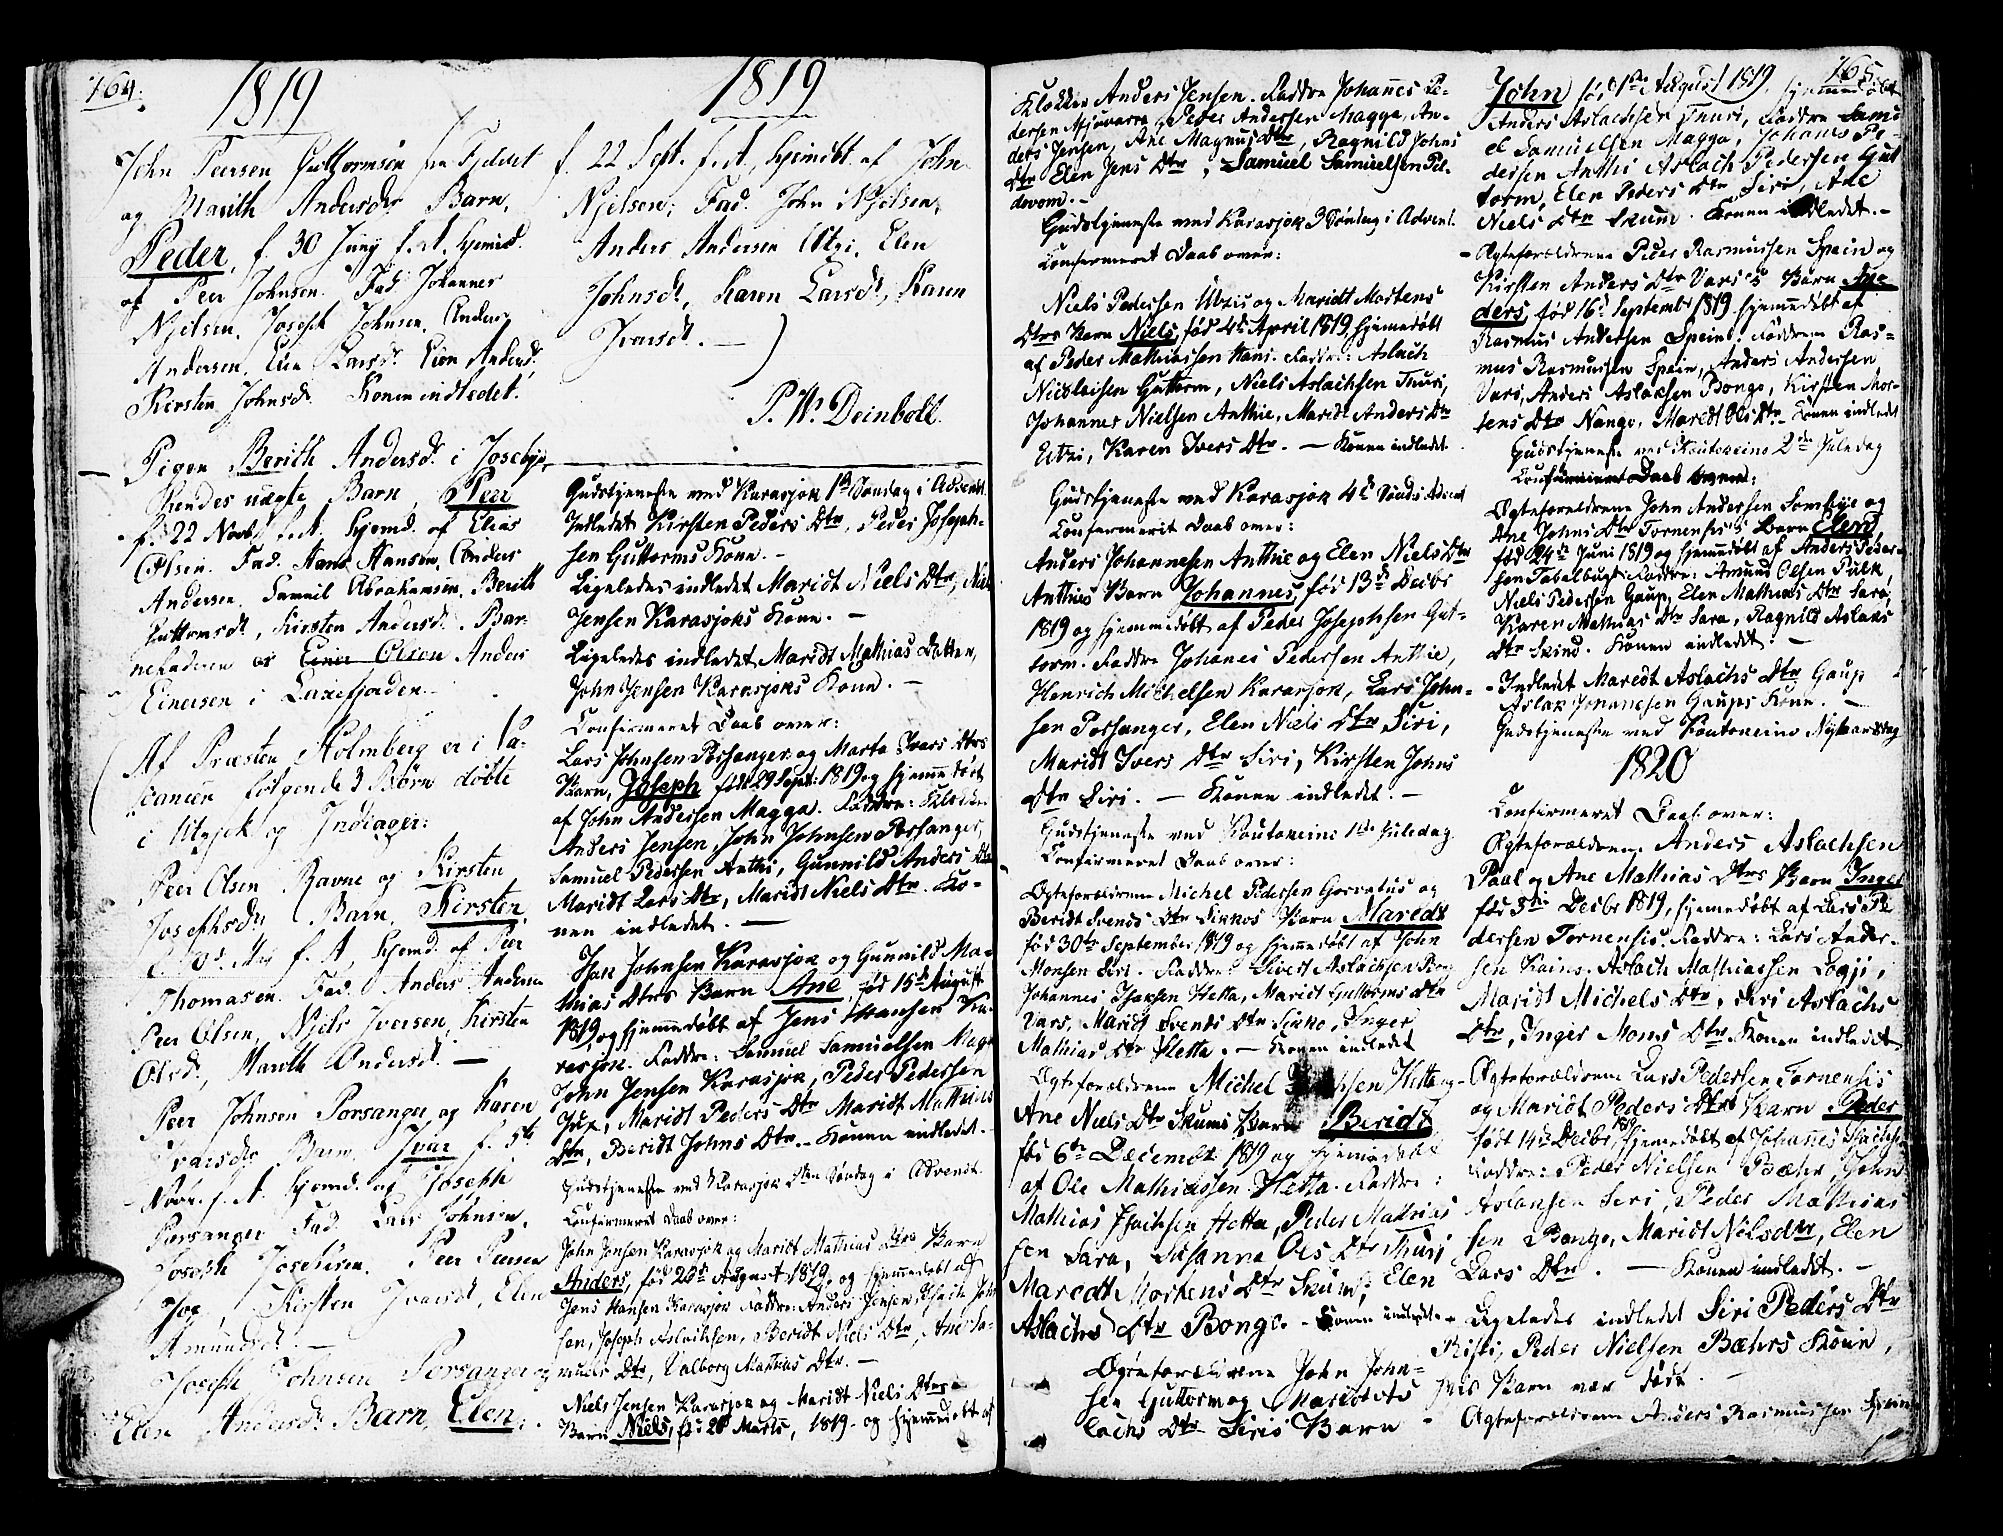 164.
1819
John Peersen Guttormsen fra Fjeldet
og Marith Andersdr Barn,
Peder, f. 30 Juny f. A. hjemd.
af Peer Johnsen. Fad. Johannes
Njelsen, Joseph Johnsen, Anders
Andersen, Elen Larsd. Elen Andersd,
Kirsten Johnsd. Konen indledet.
Pigen Berith Andersd. i
hendes uægte Barn, Peer
f. 22 Novb. f. A. hjemd. af Elias
Olsen. Fad. Hans Hansen, Anders
Andersen, Samuel Abrahamsen, Berith
Guttormsd, Kirsten Andersd. Bar-
nefaderen er Anders
Einersen i Laxefjorden.
Af Præsten Holmberg er i Va-
cancen følgende 3 Børn døbte
i Utsjok og Indiager:
Peer Olsen Ravne og Kirsten
Josephsdr Barn, Kirsten,
f. A. hjemd. af Peer
Thomasen. Fad. Anders Andersen
Peer Olsen, Njels Iversen, Kirsten
Olsd., Marith Andersd. —
Peer Johnsen Porsanger og Karen
Ivarsdr Barn, Ivar f. 5te
Novb. f. A. hjemd. af Joseph
Porsanger Fad. Lars Johnsen,
Joseph Josephsen, Peer Peersen
Kirsten Ivarsd, Elen
Amundsd. —
Joseph Johnsen Porsanger og
Elen Andersdr Barn, Elen,
1819
f. 22 Sept. f. A., hjemdbt. af John
Njelsen; Fad. John Njelsen,
Anders Andersen Utzi, Elen
Johnsd, Karen Larsd, Karen
Ivarsd. —
P. W. Deinboll.
Gudstjeneste ved Karasjok 1ste Søndag i Advent.
Indledet Kirsten Peders Dtr, Peder Joseph-
sen Guttorms Kone. —
Ligeledes indledet Maridt Niels Dtr, Niels
Jensen Karasjoks Kone. —
Ligeledes indledet Maridt Mathias Datter,
John Jensen Karasjoks Kone. —
Confirmeret Daab over:
Lars Johnsen Porsanger og Marta Ivars Dtrs
Barn, Joseph født 29 Sept: 1819 og hjemmedøbt
af John Andersen Magga. Faddre: Klokker
Anders Jensen, John Johnsen Porsanger,
Samuel Pedersen Anthi, Gunnild Anders Dtr
Maridt Lars Dtr, Maridt Niels Dtr. Ko-
nen indledet. —
Isak Johnsen Karasjok og Gunnild Ma-
thias Dtrs Barn Ane, fød 15de August
1819, og hjemmedøbt af Jens Hansen Ka-
rasjok. Faddre: Samuel Samuelsen Magga
John Jensen Karasjok, Peder Pedersen
Jux, Maridt Peders Dtr Maridt Mathias
Dtr, Beridt Johns Dtr. Konen indledet.
Gudstjeneste ved Karasjok 2den Søndag i Advendt.
Confirmeret Daab over:
John Jensen Karasjok og Maridt Mathias Dtrs Barn
Anders, fød 20de August 1819, og hjemmedøbt af
Jens Hansen Karasjok Faddre: Anders Jensen, Isach John-
sen, Joseph Aslachsen, Beridt Niels Dtr, Ane Sa-
muels Dtr, Valborg Mathias Dtr. —
Niels Jensen Karasjok og Maridt Niels Dtrs
Barn Niels, fød 20 Marts, 1819. og hjemmedøbt af
165
Klokker Anders Jensen. Faddre Johannes Pe-
dersen Ajuvarra, Peder Andersen Magga, An-
ders Jensen, Ane Magnus Dtr, Ragnild Johns
Dtr Elen Jens Dtr, Samuel Samuelsen Pel-
devom. —
Gudstjeneste ved Karasjok 3 Søndag i Advent.
Confirmeret Daab over:
Niels Pedersen Utzis og Maridt Mortens
Dtrs Barn Niels, fød 4de April 1819 hjemmedøbt
af Peder Mathiassen Hans. Faddre: Aslach
Nicolaisen Guttorm, Niels Aslachsen Thuri,
Johannes Nielsen Anthie, Maridt Anders Dtr
Utzi, Karen Ivers Dtr. — Konen indledet.
Gudstjeneste ved Karasjok 4de Sønd. i Advent
Confirmerit Daab over:
Anders Johannesen Anthie og Elen Niels Dtr
Anthies Barn Johannes, fød 13de Decbr
1819 og hjemmedøbt af Peder Josephsen Gut-
torm. Faddre Johanes Pedersen Anthie,
Henrich Michelsen Karasjok, Lars John-
sen Porsanger, Elen Niels Dtr Siri,
Maridt Ivers Dtr Siri, Kirsten Johns
Dtr Siri. — Konen indledet. —
Gudstjeneste ved Koutokeino 1ste Juledag
Confirmeret Daab over:
Ægteforældrene Michel Pedersen og
Beridt Svends Dtr Sikkos Barn Maredt
fød 30te September 1819 og hjemmedøbt af John
Monsen Siri. Faddre: Sivert Aslachsen
Johannes Isaksen Hetta, Maridt Guttorms Dtr
Vars, Maridt Svends Dtr Sikko, Inger
Mathias Dtr Hetta. — Konen indledet
Ægteforældrene Michel Hetta og
Ane Niels Dtr Skums Barn Beridt
fød 6te December 1819 og hjemmedøbt
af Ole Mathiassen Hetta. Faddre:
Mathias Isachsen Hetta, Peder Mathias
sen Sara, Susanna Ols Dtr Thuri
Maredt Mortens Dtr Skum, Elen
Aslachs Dtr Bongo. — Konen indledet. —
Ægteforældrene John John-
sen Guttorm og Maredt As
lachs Dtr Siris Barn
John fød 1ste August 1819, hjemmedøbt
Anders Aslachsen Thuri, Faddre Samu
el Samuelsen Magga, Johanes Pe-
dersen Anthi Aslach Pedersen Gut
torm, Elen Peders Dtr Siri, Ane
Niels Dtr Skum. Konen indledet. —
Ægteforældrene Peder Rasmussen Spein og
Kirsten Anders Dtr Varsis Barn An-
ders, fød 16de September 1819 hjemmedøbt af
Rasmus Andersen Spein. Faddrene Ras-
mus Rasmussen Spein, Anders Andersen
Vars, Anders Aslaksen Bongo, Kirsten Mor-
tens Dtr Nango, Maredt Ols Dtr. Konen indledet
Gudstjeneste ved Koutokeino 2den Juledag
Confirmeret Daab over:
Ægteforældrene John Andersen Sombye og
Ane Johns Dtr Tornensis's Barn Elen
fød 24de Juni 1819 og hjemmedøbt af Anders Peder-
sen Faddre: Amund Olsen Pulk,
Niels Pedersen Gaup, Elen Mathias Dtr Sara,
Karen Mathias Dtr Sara, Ragnild Aslaks
Dtr Skind. Konen indledet. —
Indledet Maredt Aslachs Dtr Gaup
Aslak Johannesen Gaups Kone. —
Gudstjeneste ved Koutokeino Nytaarsdag
1820
Confirmeret Daab over:
Ægteforældrene Anders Aslachsen
Paal og Ane Mathias Dtrs Barn Inger
fød 3die Decbr 1819, hjemmedøbt af Lars Pe
dersen Tornensis. Faddre: Lars Ander-
sen Kains. Aslach Mathiassen Logji,
Maridt Michels Dtr, Siri Aslachs
Dtr, Inger Mons Dtr. Konen indledet.
Ægteforældrene Lars Pedersen Tornensis
og Maridt Peders Dtrs Barn Peder
født 14de Decbr 1819 hjemmedøbt af Johannes Isachsen
Faddre: Peder Nielsen Bæhr, John
Aslaksen Siri, Peder Mathias
sen Bongo, Maridt Nilsdtr, Elen
Lars Dtr. — Konen indledet. —
Ligeledes indledet Siri Peders Dtr
Risti, Peder Nielsen Bæhrs Kone,
hvis Barn var født. —
Ægteforældrene Anders Rasmussen Spein